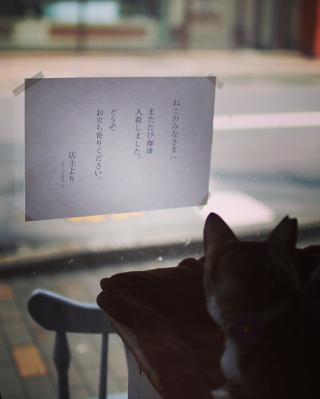 ねこのみなさまへ
またたび珈琲
入荷しました。
どうぞ
お立ち寄りください。
店主より